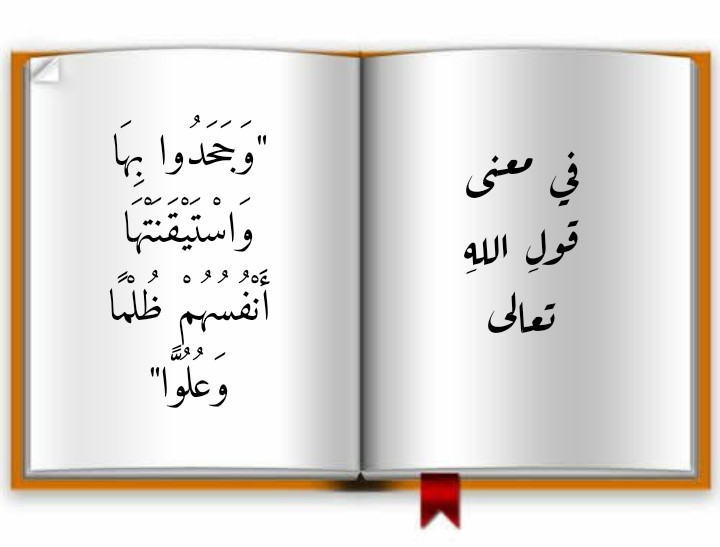 في معنى
قولِ اللهِ
تعالى
"وَجَحَدُوا بِهَا
وَاسْتَيْقَنَتْهَا
أَنْفُسُهُمْ ظُلْمًا
وَعُلُوًّا"